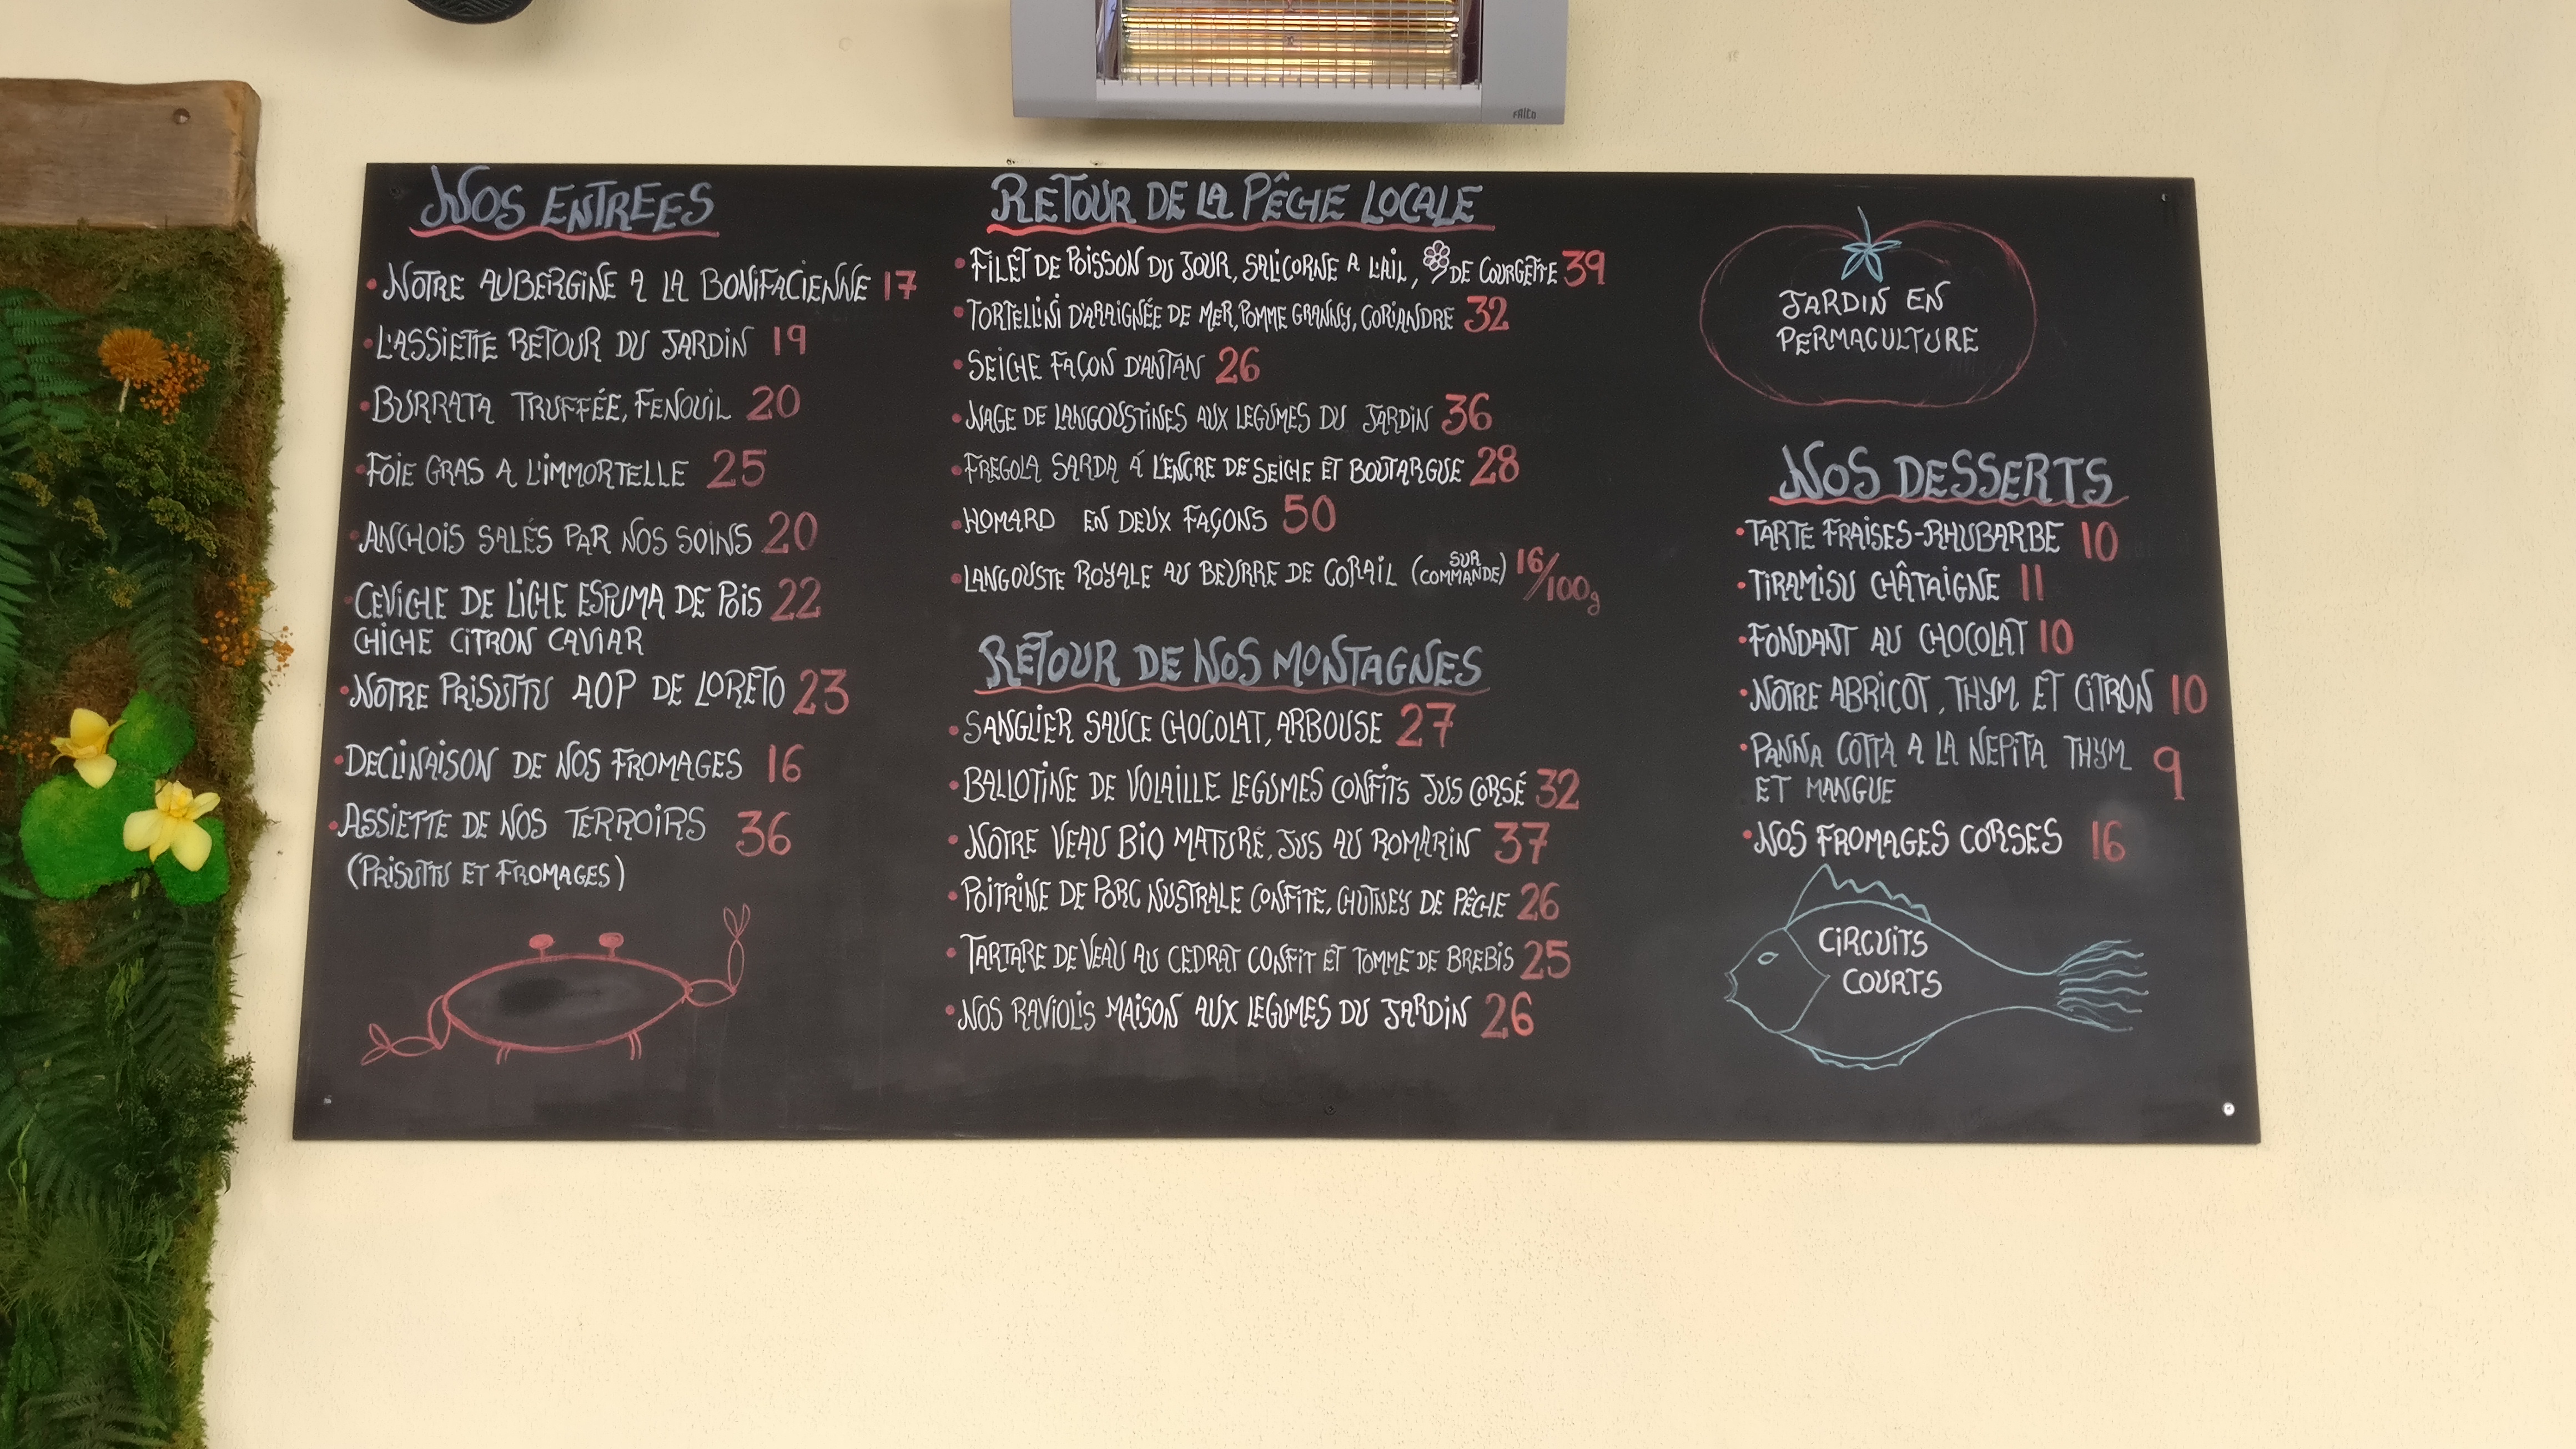 FRICO
NOS ENTREES
•NOTRE AUBERGINE A LA BONIFACIENNE 17
•L'ASSIETTE RETOUR DU JARDIN 19
•BURRATA TRUFFÉE, FENOUIL 20
•FOIE GRAS A L'IMMORTELLE 25
•ANCHOIS SALÉS PAR NOS SOINS 20
•CEVICHE DE LICHE ESPUMA DE POIS 22
CHICHE CITRON CAVIAR
•NOTRE PRISUTTU AOP DE LORETO 23
•DECLINAISON DE NOS FROMAGES 16
•ASSIETTE DE NOS TERROIRS 36
(PRISUTTU ET FROMAGES)
RETOUR DE LA PÊCHE LOCALE
•FILET DE POISSON DU JOUR, SALICORNE A L'AIL, DE COURGETTE 39
•TORTELLINI D'ARAIGNÉE DE MER, POMME GRANNY, CORIANDRE 32
•SEICHE FAÇON D'ANTAN 26
•NAGE DE LANGOUSTINES AUX LEGUMES DU JARDIN 36
•FREGOLA SARDA Á L'ENCRE DE SEICHE ET BOUTARGUE 28
•HOMARD EN DEUX FAÇONS 50
•LANGOUSTE ROYALE AU BEURRE DE CORAIL (SUR COMMANDE) 16/100g
RETOUR DE NOS MONTAGNES
•SANGLIER SAUCE CHOCOLAT, ARBOUSE 27
•BALLOTINE DE VOLAILLE LEGUMES CONFITS JUS CORSÉ 32
•NOTRE VEAU BIO MATURÉ, JUS AU ROMARIN 37
•POITRINE DE PORC NUSTRALE CONFITE, CHUTNEY DE PÊCHE 26
•TARTARE DE VEAU AU CEDRAT CONFIT ET TOMME DE BREBIS 25
•NOS RAVIOLIS MAISON AUX LEGUMES DU JARDIN 26
JARDIN EN
PERMACULTURE
NOS DESSERTS
•TARTE FRAISES-RHUBARBE 10
•TIRAMISU CHÂTAIGNE 11
•FONDANT AU CHOCOLAT 10
•NOTRE ABRICOT, THYM ET CITRON 10
•PANNA COTTA A LA NEPITA THYM 9
ET MANGUE
•NOS FROMAGES CORSES 16
CIRCUITS
COURTS